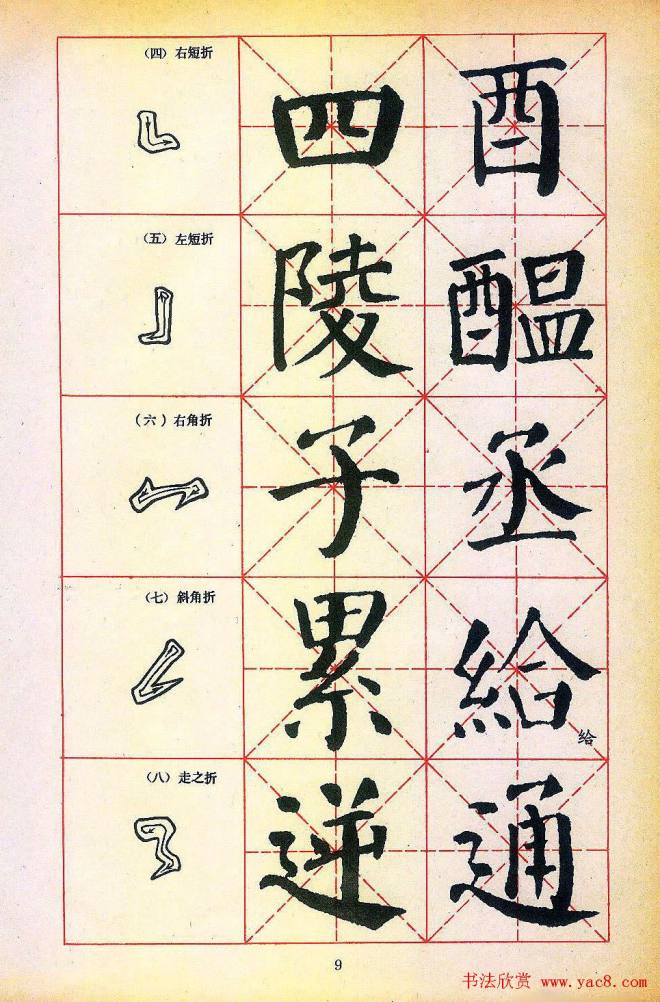 (四) 右短折
四 酉
(五) 左短折
陵 醖
(六) 右角折
子 丞
(七) 斜角折
累 給 给
(八) 走之折
逆 通
9
书法欣赏 www.yac8.com